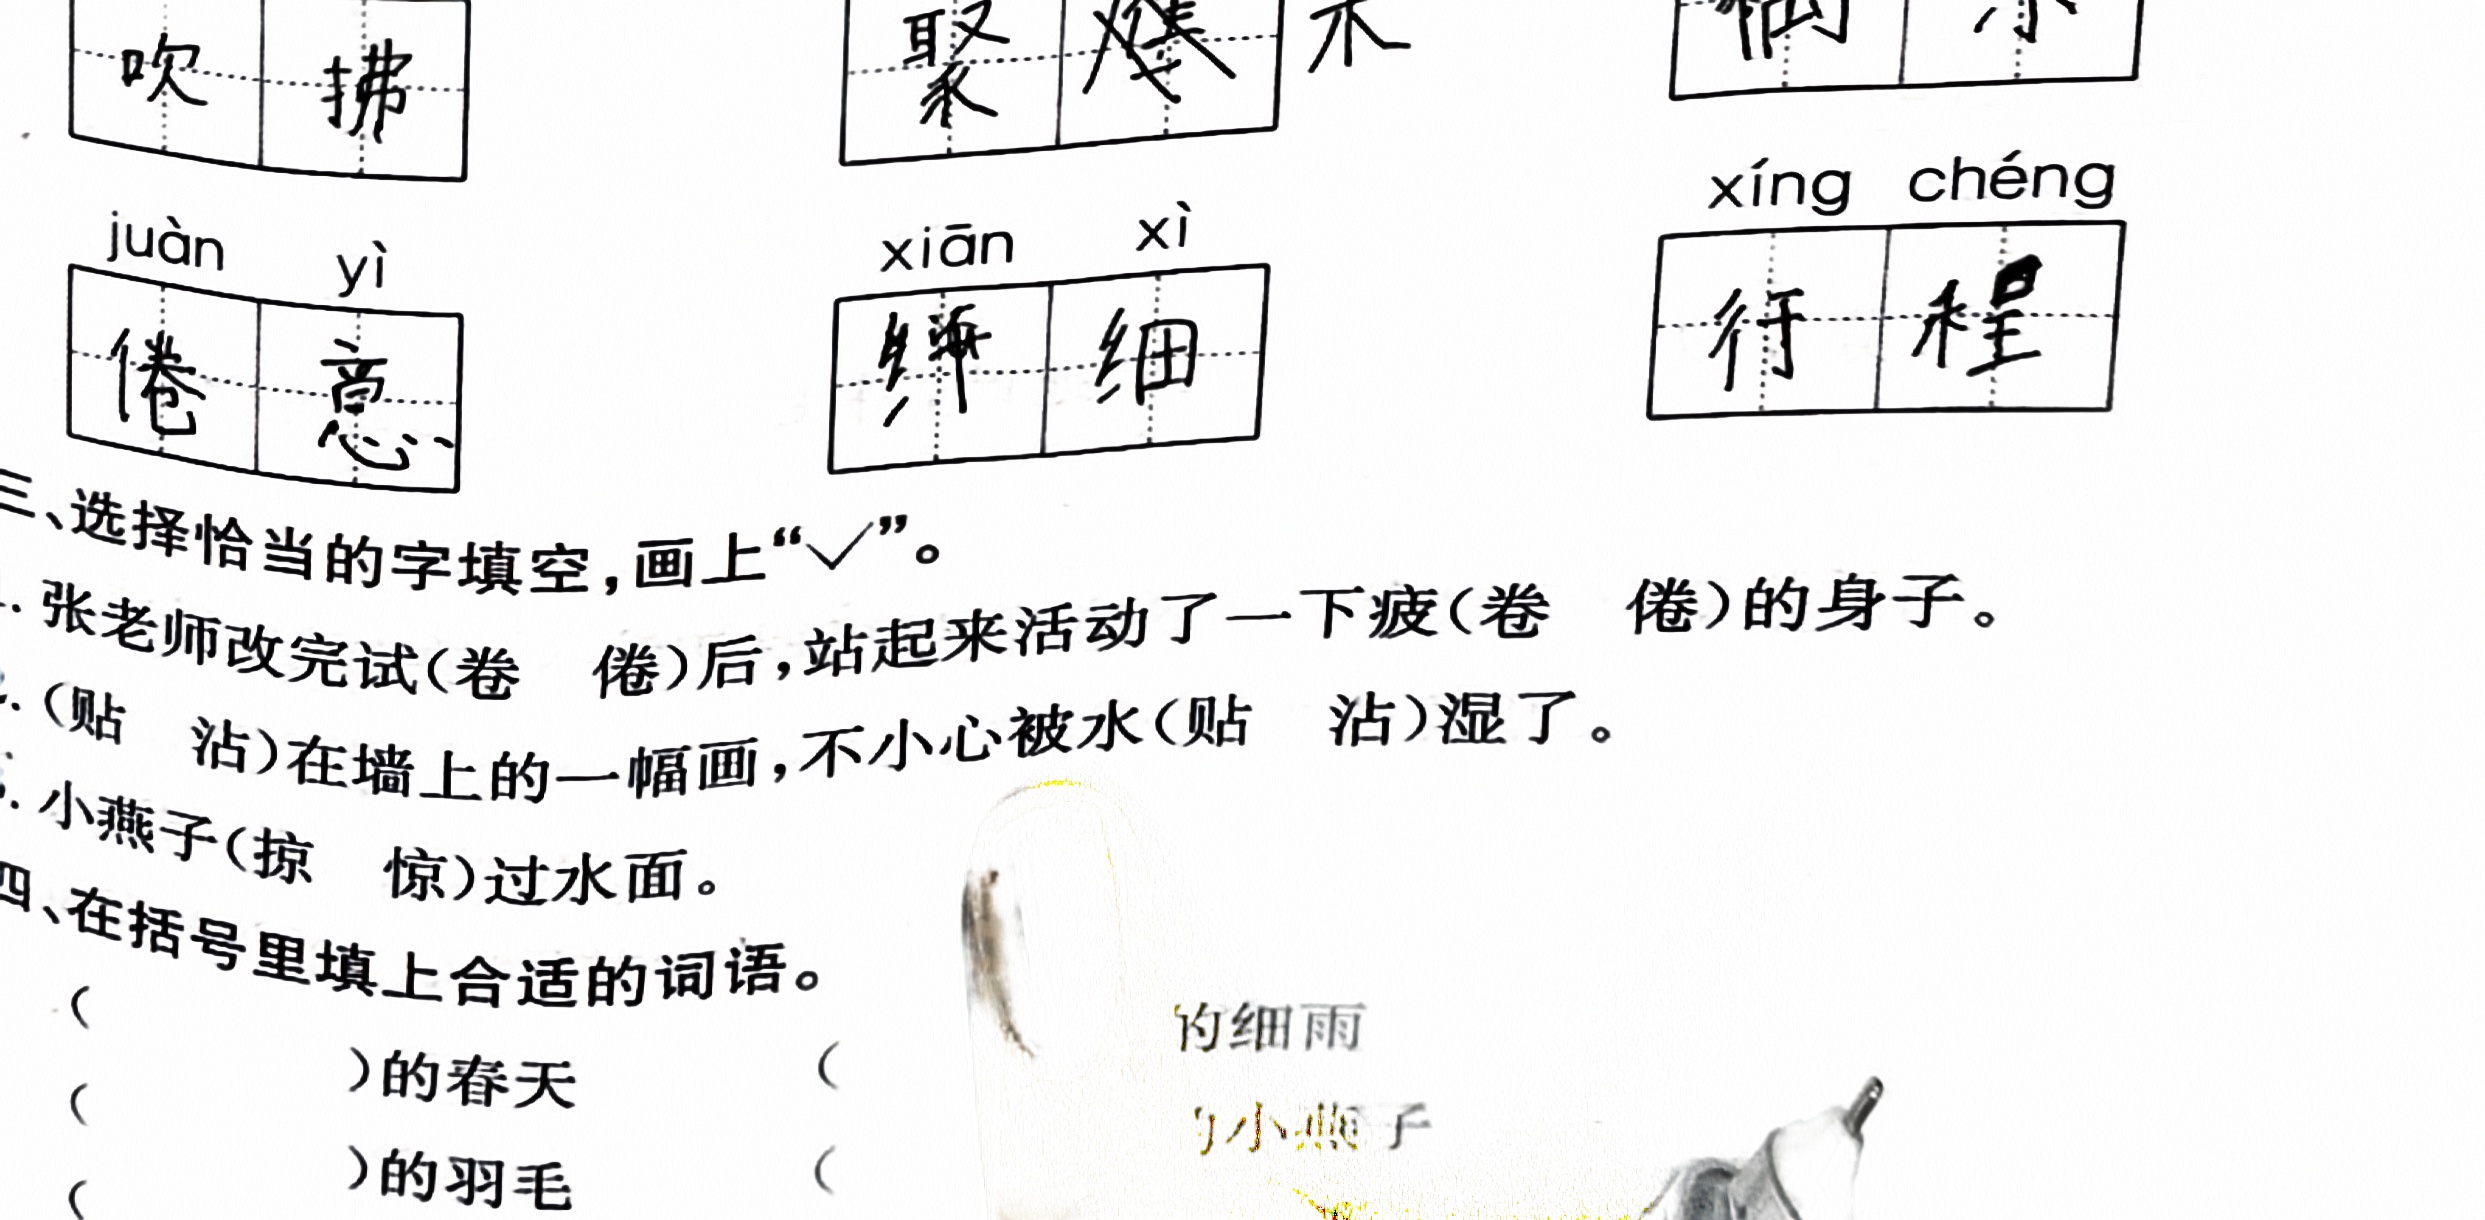 吹 拂 聚
xíng chéng
juàn yì xiān xì
倦 意 纤 细 行 程
三、选择恰当的字填空,画上“✓”。
1. 张老师改完试(卷 倦)后,站起来活动了一下疲(卷 倦)的身子。
(贴 沾)在墙上的一幅画,不小心被水(贴 沾)湿了。
小燕子(掠 惊)过水面。
四、在括号里填上合适的词语。
( )的春天 ( 的细雨
( )的羽毛 ( 的小燕子
(